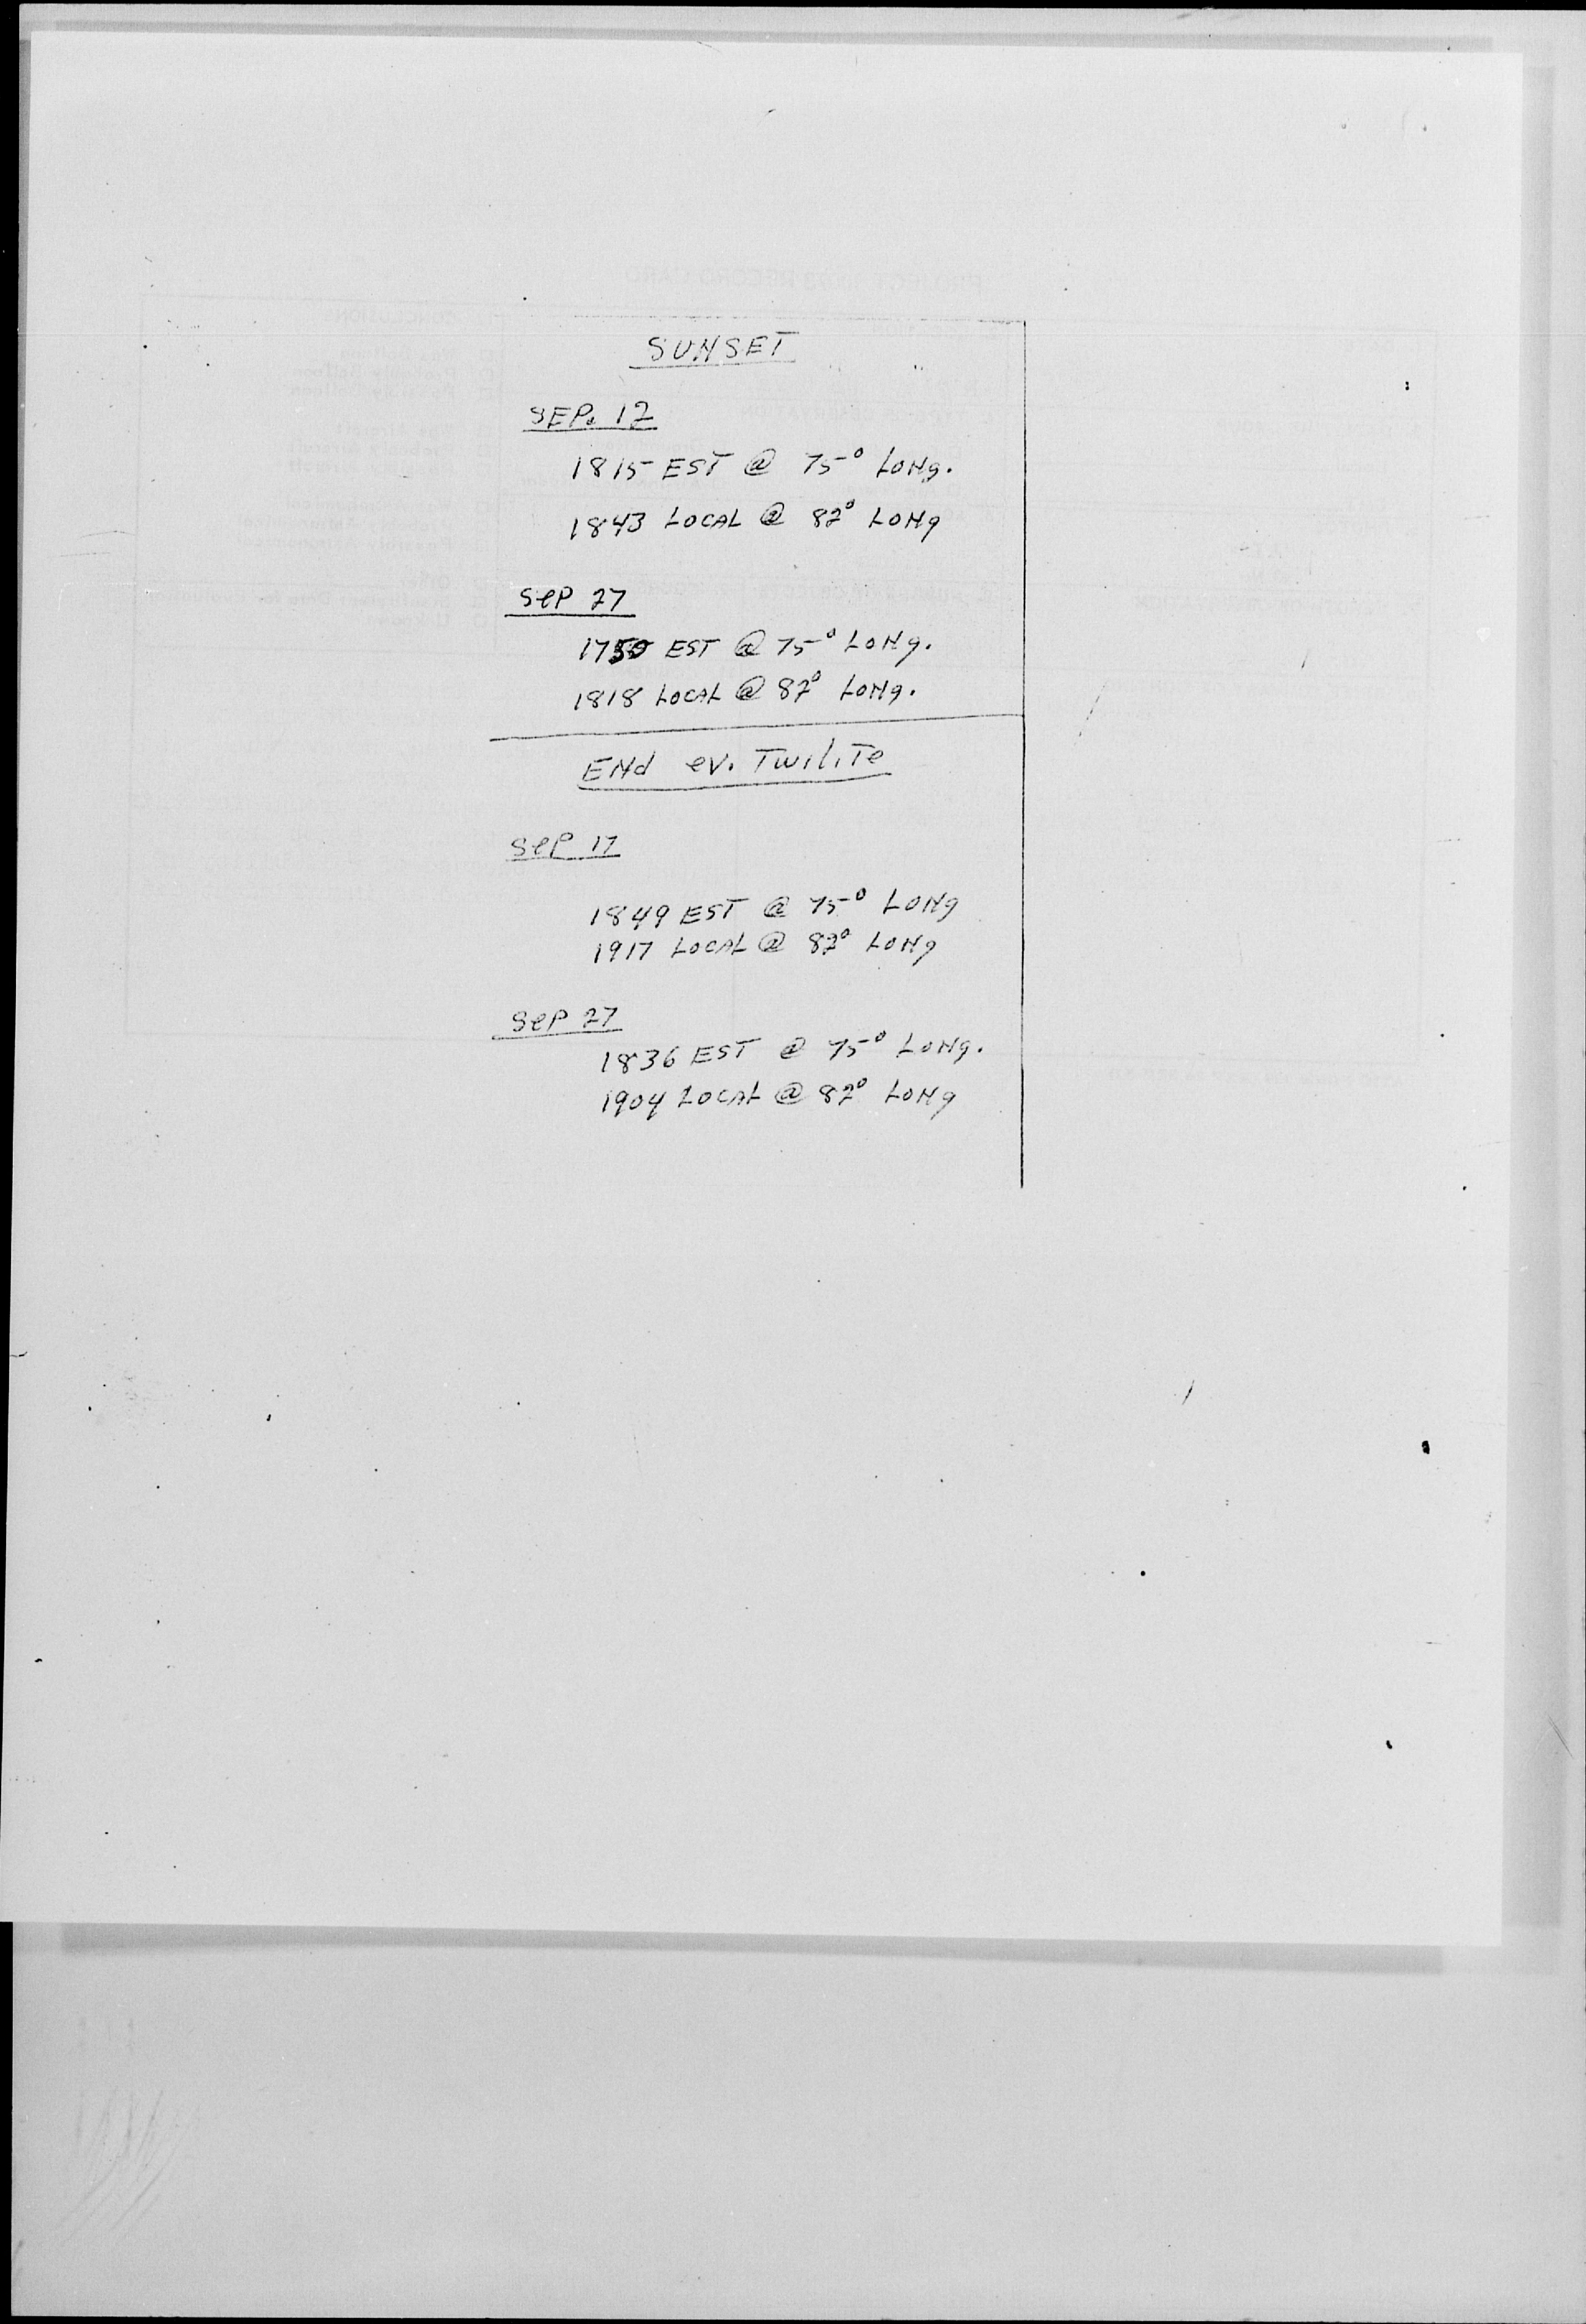 SUNSET
SEP. 12
1815 EST @ 75° LONg.
1843 LOCAL @ 82° LONg
SeP 27
1750 EST @ 75° LONg.
1818 LOCAL @ 82° LONg.
ENd ev. TwiliTe
SeP 17
1849 EST @ 75° LONg
1917 LOCAL @ 82° LONg
SeP 27
1836 EST @ 75° LONg.
1904 LOCAL @ 82° LONg